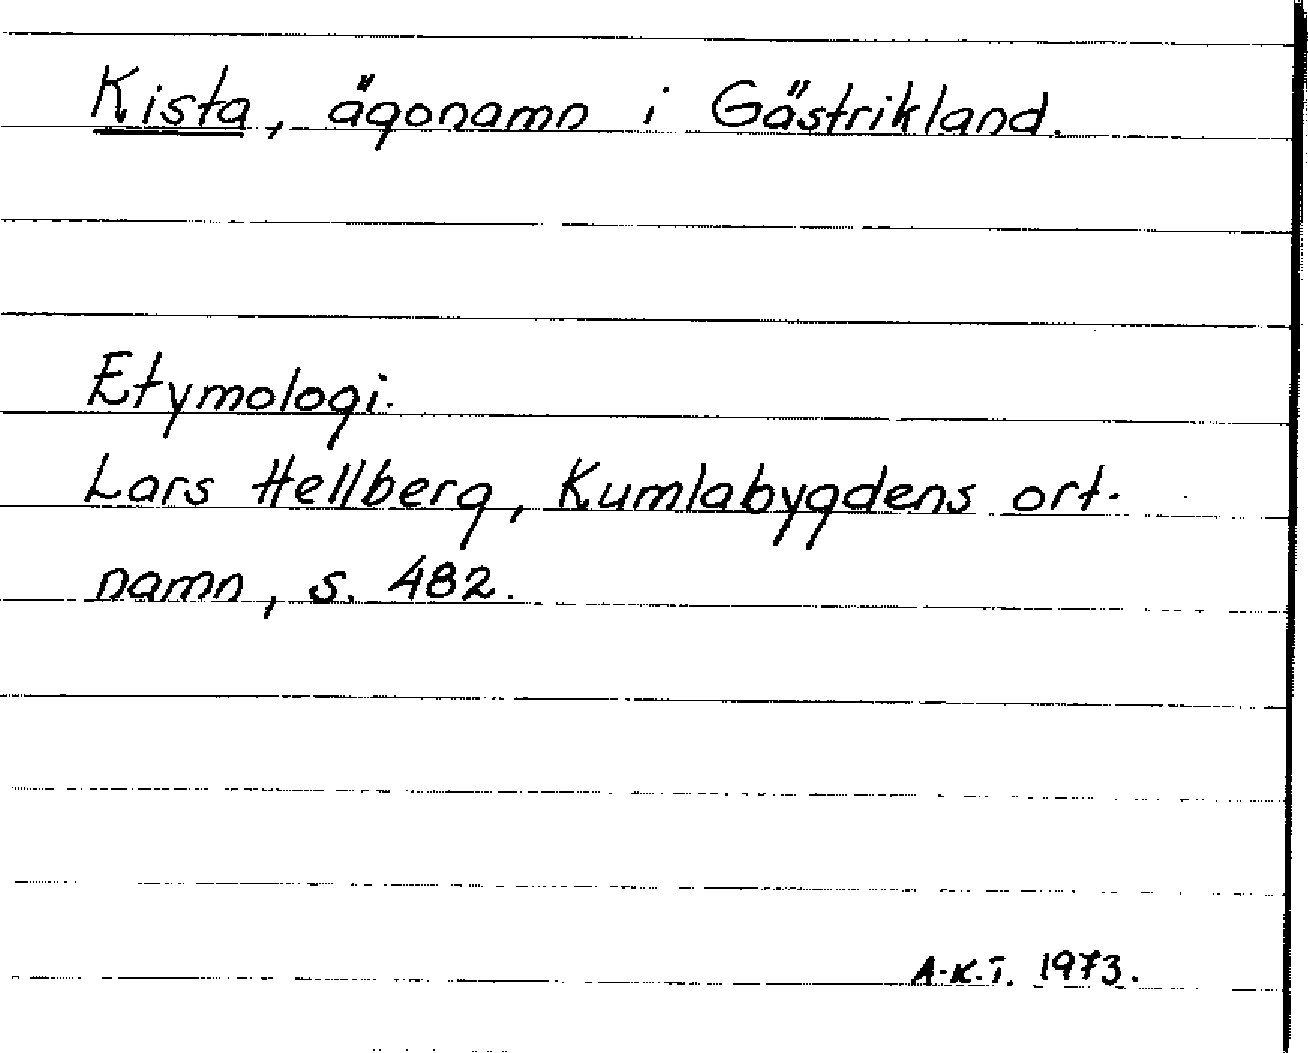 Kista, ägonamn i Gästrikland.
Etymologi.
Lars Hellberg, Kumlabygdens ort-
namn, s. 482.
A-K.T. 1973.